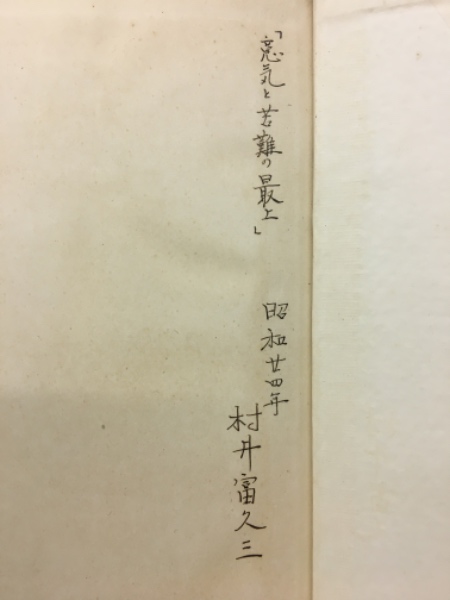 「意気と苦難の最上」
昭和廿四年
村井富久三